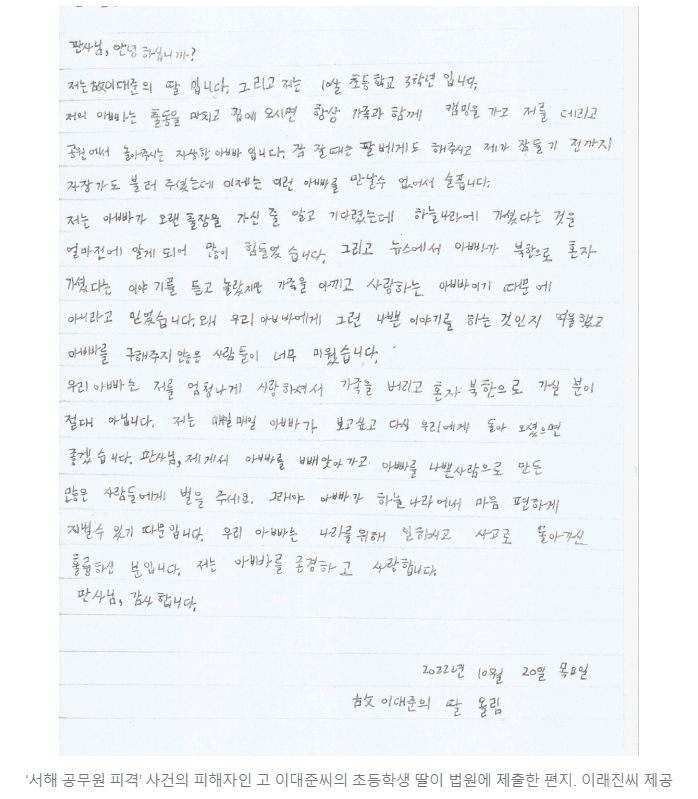 판사님, 안녕 하십니까?
저는 故이대준의 딸 입니다. 그리고 저는 10살 초등학교 3학년 입니다.
저의 아빠는 출동을 마치고 집에 오시면 항상 가족과 함께 캠핑을 가고 저를 데리고
공원에서 놀아주시는 자상한 아빠 입니다. 잠 잘 때는 팔 베게도 해주시고 제가 잠들기 전까지
자장가도 불러 주셨는데 이제는 이런 아빠를 만날수 없어서 슬픕니다.
저는 아빠가 오랜 출장을 가신 줄 알고 기다렸는데 하늘나라에 가셨다는 것을
얼마전에 알게 되어 많이 힘들었 습니다. 그리고 뉴스에서 아빠가 북한으로 혼자
가셨다는 이야 기를 듣고 놀랐지만 가족을 아끼고 사랑하는 아빠이기 때문에
아니라고 믿었습니다. 왜 우리 아빠에게 그런 나쁜 이야기를 하는 것인지 미웠고
아빠를 구해주지 않은 사람들이 너무 미웠습니다.
우리 아빠는 저를 엄청나게 사랑하셔서 가족을 버리고 혼자 북한으로 가실 분이
절대 아닙니다. 저는 매일 매일 아빠가 보고싶고 다시 우리에게 돌아 오셨으면
좋겠 습니다. 판사님, 제게서 아빠를 빼앗아가고 아빠를 나쁜사람으로 만든
많은 사람들에게 벌을 주세요. 그래야 아빠가 하늘 나라에서 마음 편하게
지낼수 있기 때문입니다. 우리 아빠는 나라를위해 일하시고 사고로 돌아가신
훌륭하신 분입니다. 저는 아빠를 존경하고 사랑합니다.
판사님, 감사 합니다.
2022년 10월 20일 목요일
故 이대준의 딸 올림
‘서해 공무원 피격’ 사건의 피해자인 고 이대준씨의 초등학생 딸이 법원에 제출한 편지. 이래진씨 제공